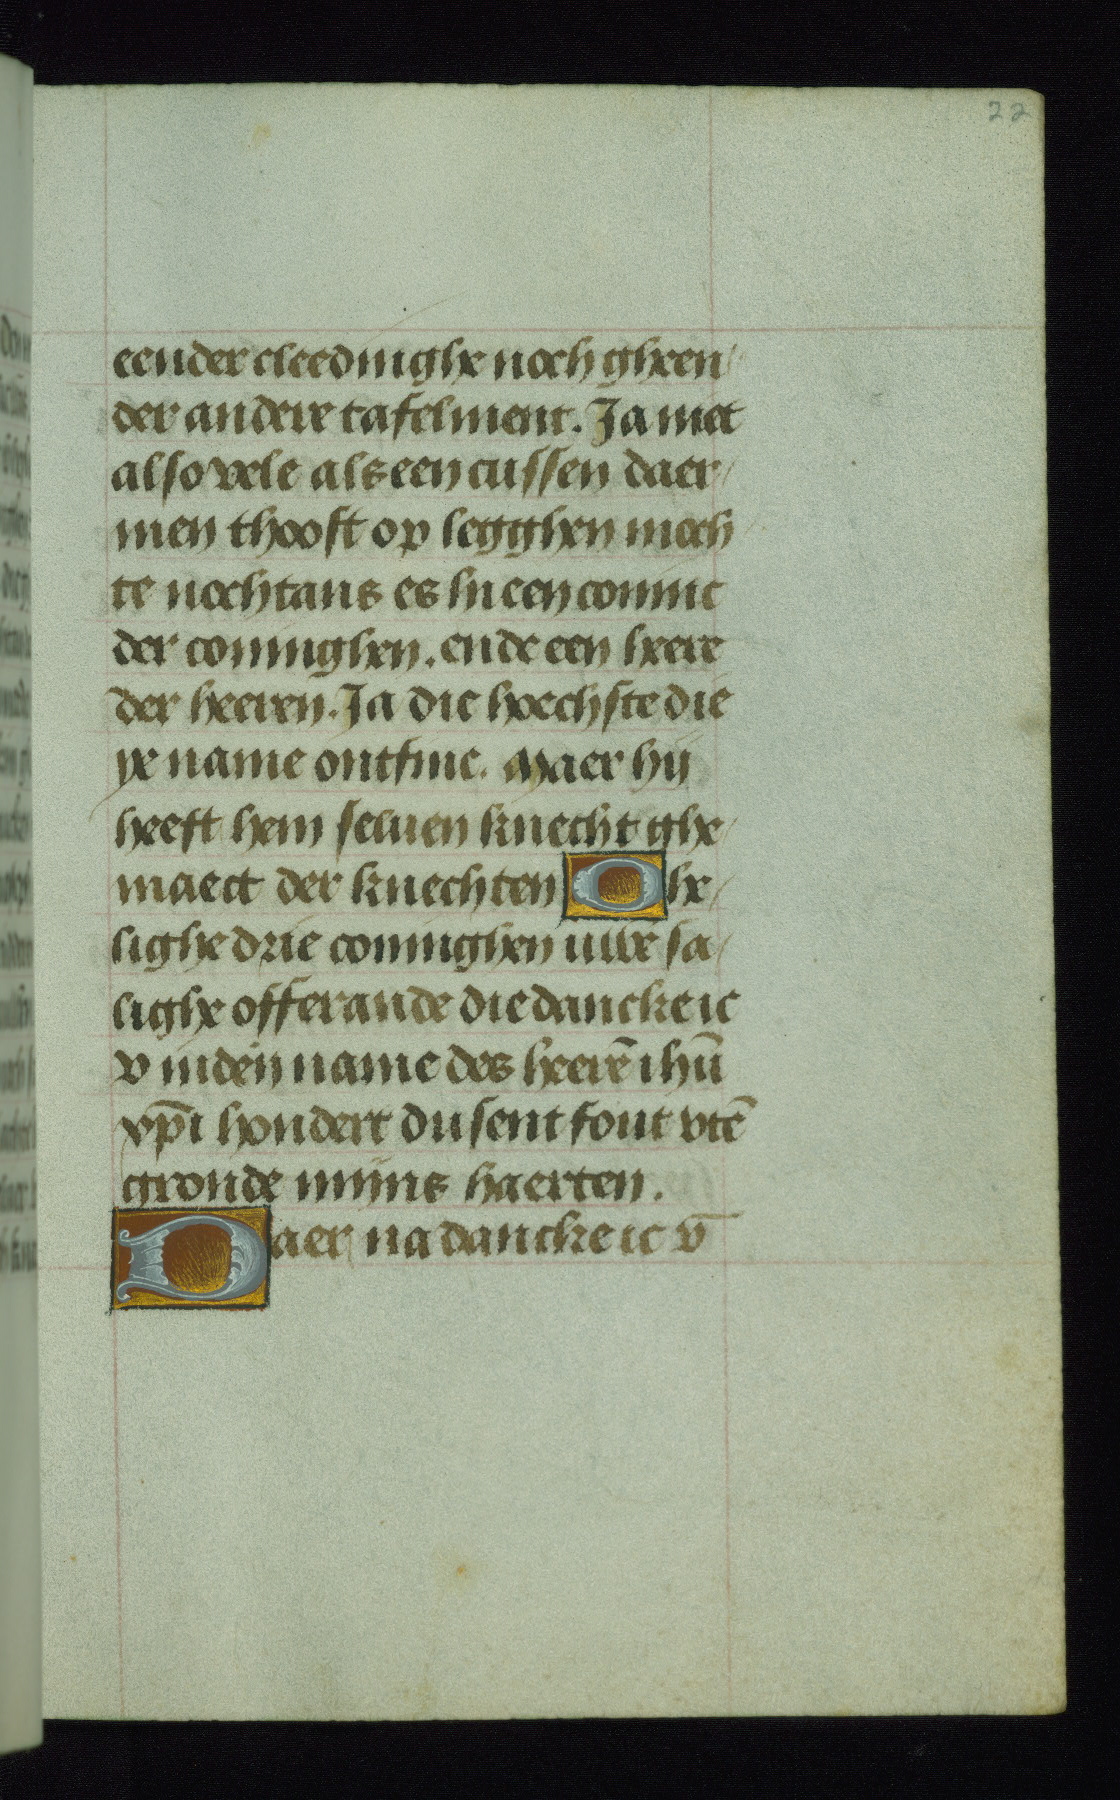 22
eender cleedinghe noch gheen/
der andere tafelment. Ja met
also vele als een cussen daer/
men thooft op legghen moch
te nochtans es hi een coninc
der coninghen. ende een heere
der heeren. Ja die hoechste die
ye name ontfinc. Maer hij
heeft hem seluen knecht ghe/
maect der knechten O he/
lighe drie coninghen uwe sa/
lighe offerande die dancke ic
v in den name des heerē ihū
xp̄i hondert dusent fout vtē
gronde mijns haerten.
Daer na dancke ic v̄